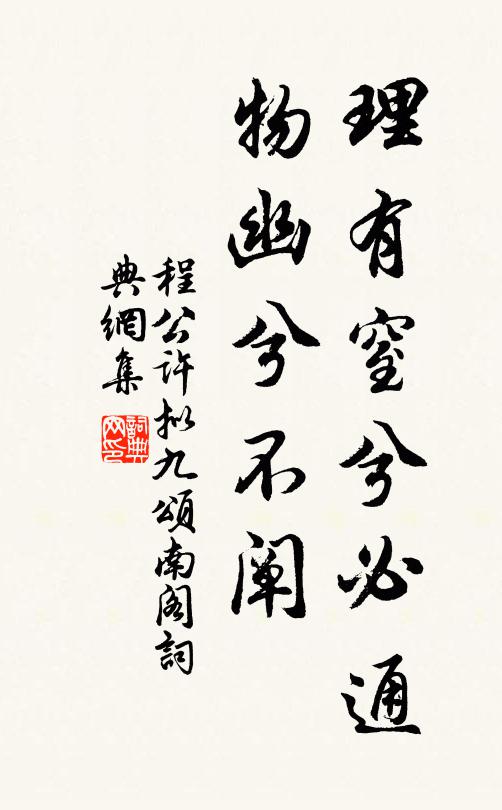 理有窒兮必通
物幽兮不阐
程公许拟九颂南阁词
典网集
詞典网印